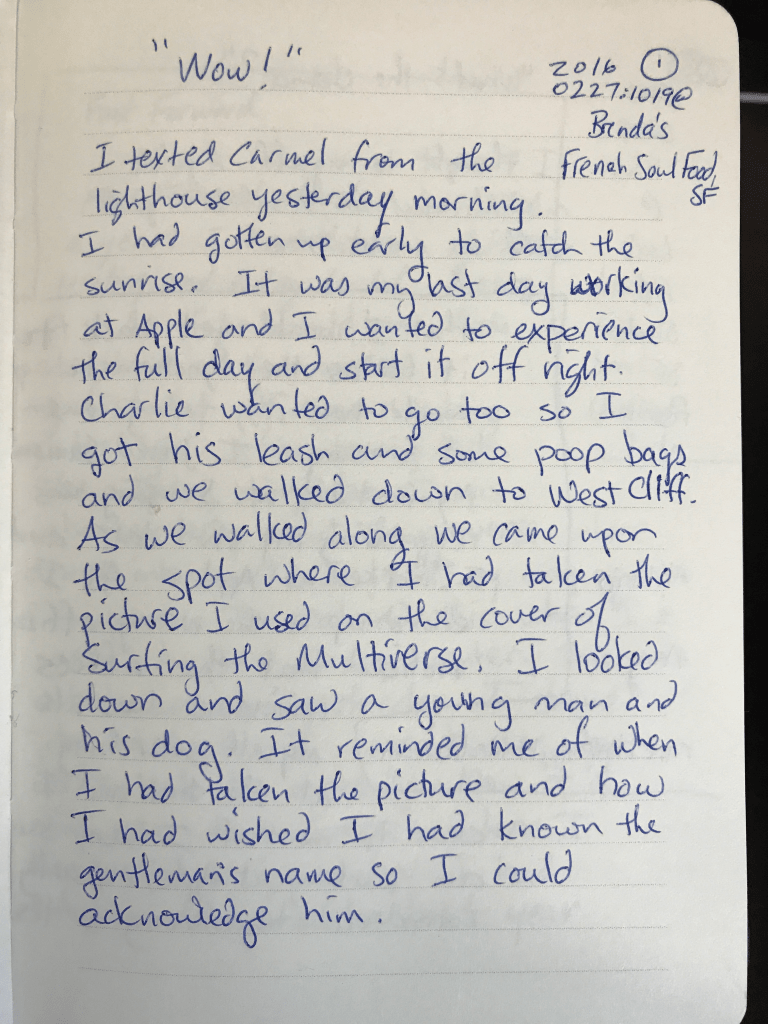 "Wow!"
2016 ①
0227:1019@
Brenda's
French Soul Food,
SF
I texted Carmel from the
lighthouse yesterday morning.
I had gotten up early to catch the
sunrise. It was my last day working
at Apple and I wanted to experience
the full day and start it off right.
Charlie wanted to go too so I
got his leash and some poop bags
and we walked down to West Cliff.
As we walked along we came upon
the spot where I had taken the
picture I used on the cover of
Surfing the Multiverse. I looked
down and saw a young man and
his dog. It reminded me of when
I had taken the picture and how
I had wished I had known the
gentleman's name so I could
acknowledge him.